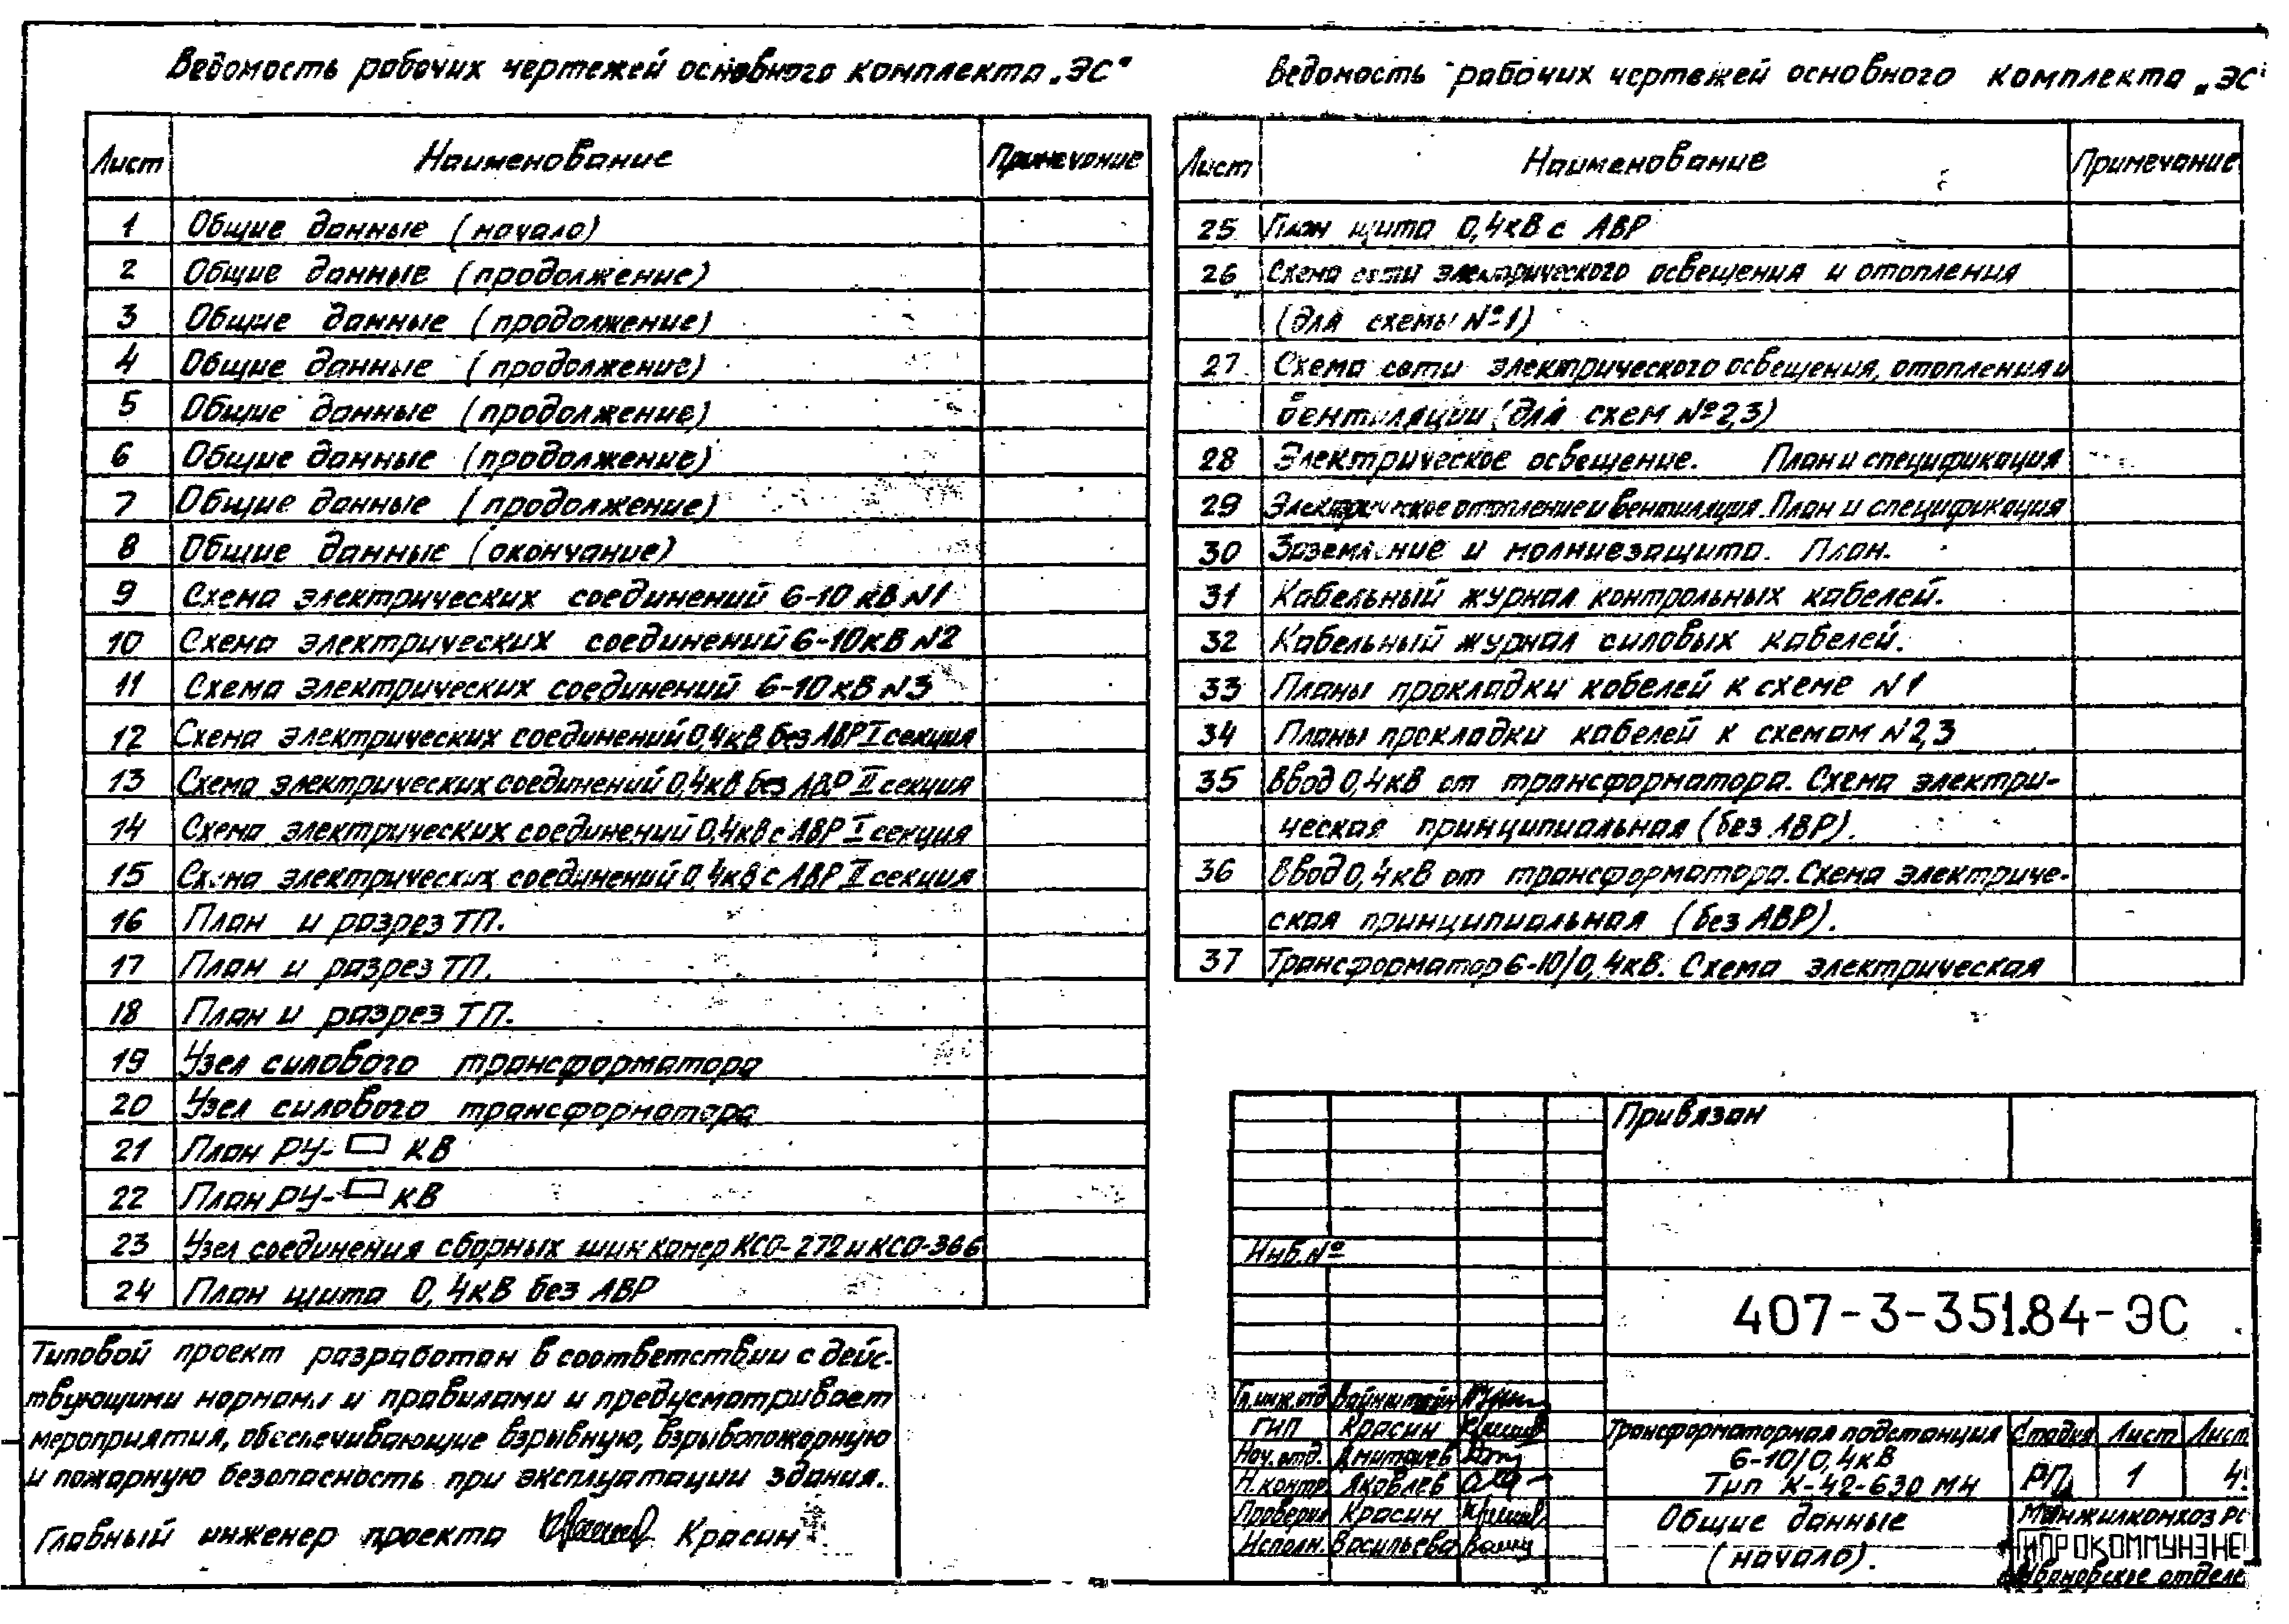 Ведомость рабочих чертежей основного комплекта „ЭС"
Лист Наименование Примечание
1 Общие данные (начало)
2 Общие данные (продолжение)
3 Общие данные (продолжение)
4 Общие данные (продолжение)
5 Общие данные (продолжение)
6 Общие данные (продолжение)
7 Общие данные (продолжение)
8 Общие данные (окончание)
9 Схема электрических соединений 6-10 кВ N1
10 Схема электрических соединений 6-10кВ N2
11 Схема электрических соединений 6-10кВ N3
12 Схема электрических соединений 0,4кВ без АВР I секция
13 Схема электрических соединений 0,4кВ без АВР II секция
14 Схема электрических соединений 0,4кВ с АВР I секция
15 Схема электрических соединений 0,4кВ с АВР II секция
16 План и разрез ТП.
17 План и разрез ТП.
18 План и разрез ТП.
19 Узел силового трансформатора
20 Узел силового трансформатора
21 План РУ- КВ
22 План РУ- КВ
23 Узел соединения сборных шин камер КСО-272 и КСО-366
24 План щита 0,4кВ без АВР
Ведомость рабочих чертежей основного комплекта „ЭС
Лист Наименование Примечание
25 План щита 0,4кВ с АВР
26 Схема сети электрического освещения и отопления
(для схемы №1)
27 Схема сети электрического освещения, отопления и
вентиляции (для схем №2,3)
28 Электрическое освещение. План и спецификация
29 Электрическое отопление и вентиляция. План и спецификация
30 Заземление и молниезащита. План.
31 Кабельный журнал контрольных кабелей.
32 Кабельный журнал силовых кабелей.
33 Планы прокладки кабелей к схеме N1
34 Планы прокладки кабелей к схемам N2,3
35 Ввод 0,4кВ от трансформатора. Схема электри-
ческая принципиальная (без АВР).
36 Ввод 0,4кВ от трансформатора. Схема электриче-
ская принципиальная (без АВР).
37 Трансформатор 6-10/0,4кВ. Схема электрическая
Типовой проект разработан в соответствии с дейс-
твующими нормами и правилами и предусматривает
мероприятия, обеспечивающие взрывную, взрывопожарную
и пожарную безопасность при эксплуатации здания.
Главный инженер проекта Красин
Привязан
Инв.№
407-3-351.84-ЭС
Гл.инж.отд Вайнштейн
ГИП Красин
Нач.отд.
Н.контр. Яковлев
Проверил Красин
Исполн. Васильева
Трансформаторная подстанция
6-10/0,4кВ
Тип К-42-630 МН
Стадия Лист Лист
РП 1 4
Общие данные
(начало).
Минжилкомхоз РС
ГИПРОКОММУНЭНЕ
Ивановское отделе